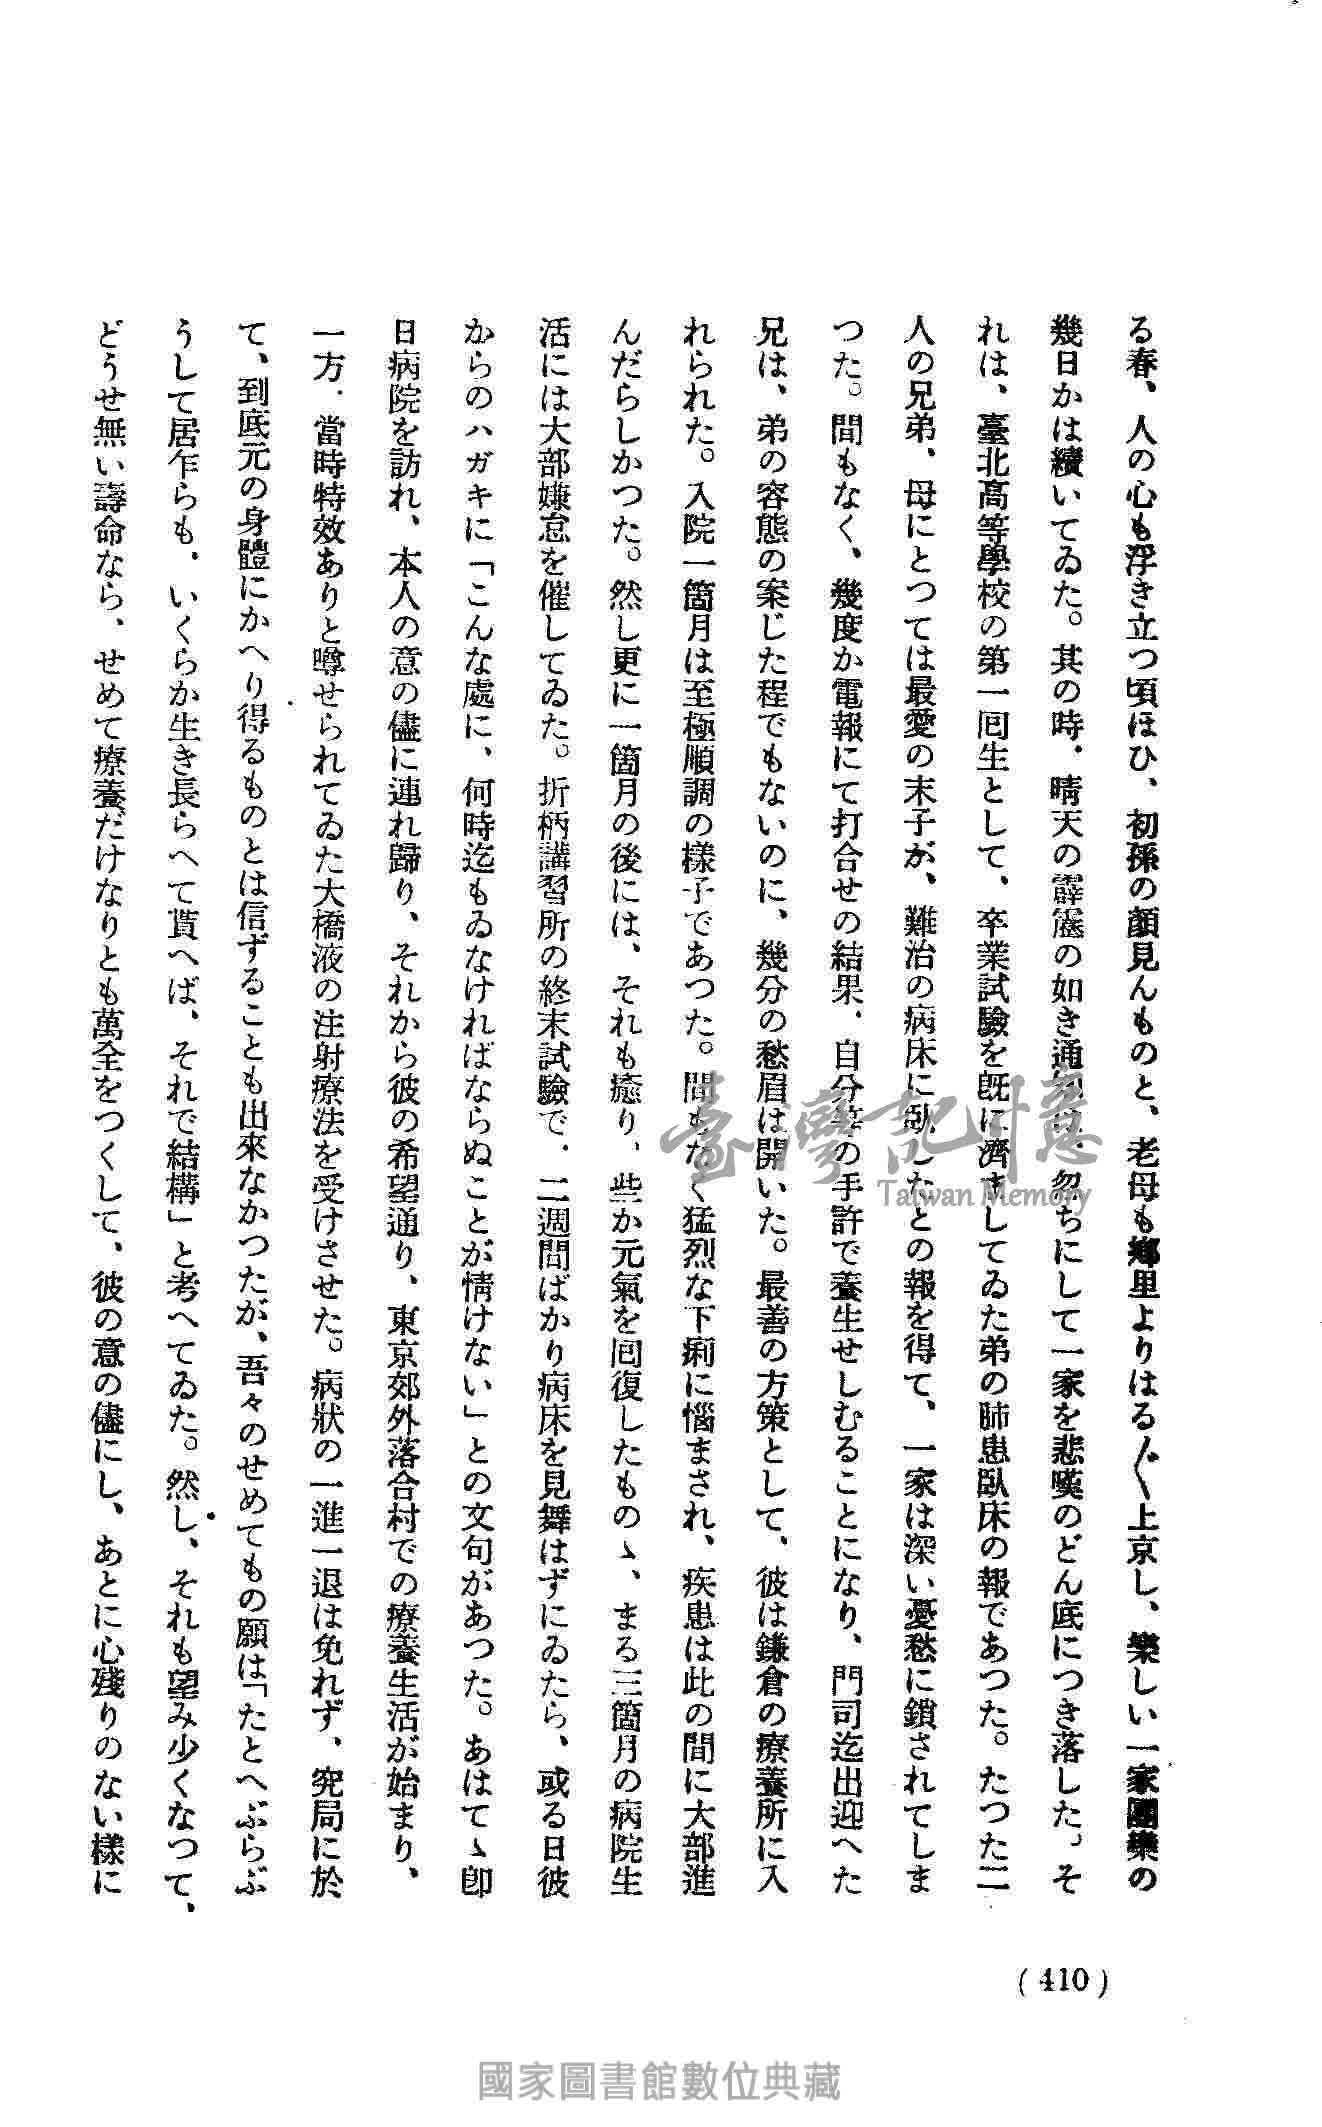 る春、人の心も浮き立つ頃ほひ、初孫の顏見んものと、老母も鄕里よりはる〴〵上京し、樂しい一家團欒の
幾日かは續いてゐた。其の時、晴天の霹靂の如き通知は、忽ちにして一家を悲嘆のどん底につき落した。そ
れは、臺北高等學校の第一囘生として、卒業試驗を既に濟ましてゐた弟の肺患臥床の報であつた。たつた二
人の兄弟、母にとつては最愛の末子が、難治の病床に臥したとの報を得て、一家は深い憂愁に鎖されてしま
つた。間もなく、幾度か電報にて打合せの結果、自分等の手許で養生せしむることになり、門司迄出迎へた
兄は、弟の容態の案じた程でもないのに、幾分の愁眉は開いた。最善の方策として、彼は鎌倉の療養所に入
れられた。入院一箇月は至極順調の樣子であつた。間もなく猛烈な下痢に惱まされ、疾患は此の間に大部進
んだらしかつた。然し更に一箇月の後には、それも癒り、些か元氣を囘復したものゝ、まる三箇月の病院生
活には大部嫌怠を催してゐた。折柄講習所の終末試驗で、二週間ばかり病床を見舞はずにゐたら、或る日彼
からのハガキに「こんな處に、何時迄もゐなければならぬことが情けない」との文句があつた。あはてゝ卽
日病院を訪れ、本人の意の儘に連れ歸り、それから彼の希望通り、東京郊外落合村での療養生活が始まり、
一方、當時特效ありと噂せられてゐた大橋液の注射療法を受けさせた。病狀の一進一退は免れず、究局に於
て、到底元の身體にかへり得るものとは信ずることも出來なかつたが、吾々のせめてもの願は「たとへぶらぶ
うして居乍らも、いくらか生き長らへて貰へば、それで結構」と考へてゐた。然し、それも望み少くなつて、
どうせ無い壽命なら、せめて療養だけなりとも萬全をつくして、彼の意の儘にし、あとに心殘りのない樣に
(410)
臺灣記憶
Taiwan Memory
國家圖書館數位典藏